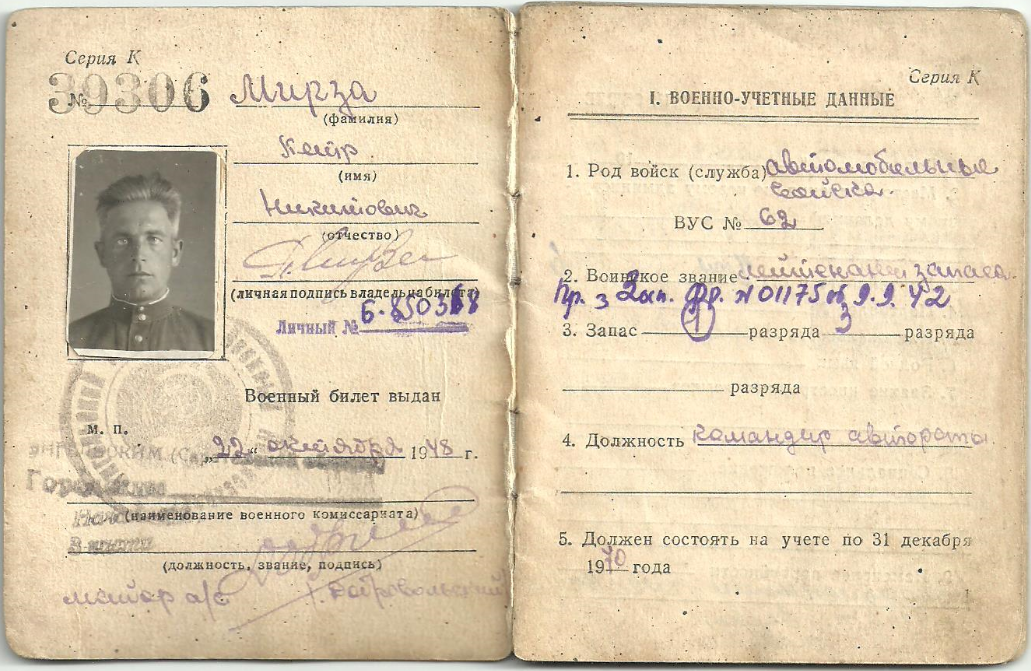 Серия К
№ 39306 Мирза
(фамилия)
Петр
(имя)
Никитович
(отчество)
(личная подпись владельца билета)
Личный №
Военный билет выдан
м. п.
„22“ октября 1948 г.
Энгельсским
Городским
(наименование военного комиссариата)
(должность, звание, подпись)
майор а/с
Серия К
I. ВОЕННО-УЧЕТНЫЕ ДАННЫЕ
1. Род войск (служба) автомобильные
войска.
ВУС № 62
2. Воинское звание лейтенант запаса
Пр. 3 фр. N 01175 от 9.9.42
3. Запас 1 разряда 3 разряда
разряда
4. Должность командир автороты.
5. Должен состоять на учете по 31 декабря
1970 года